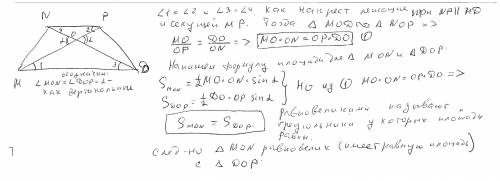 N P
O
1 3
M
обозначим:
∠MON=∠DOP=α-
как вертикальные
∠1=∠2 и ∠3=∠4 как накрест лежащие при NP∥MD
и секущей MP. Тогда △MOD∾△NOP =>
MO/OP = DO/ON => MO·ON=OP·DO ①
Напишем формулу площади для △MON и △DOP:
S_MON = 1/2 MO·ON·Sin α
S_DOP = 1/2 DO·OP·Sin α
но из ① MO·ON=OP·DO =>
S_MON = S_DOP.
равновеликими называют
треугольники у которых площади
равны.
след-но △MON равновелик (имеет равную площадь)
с △DOP.